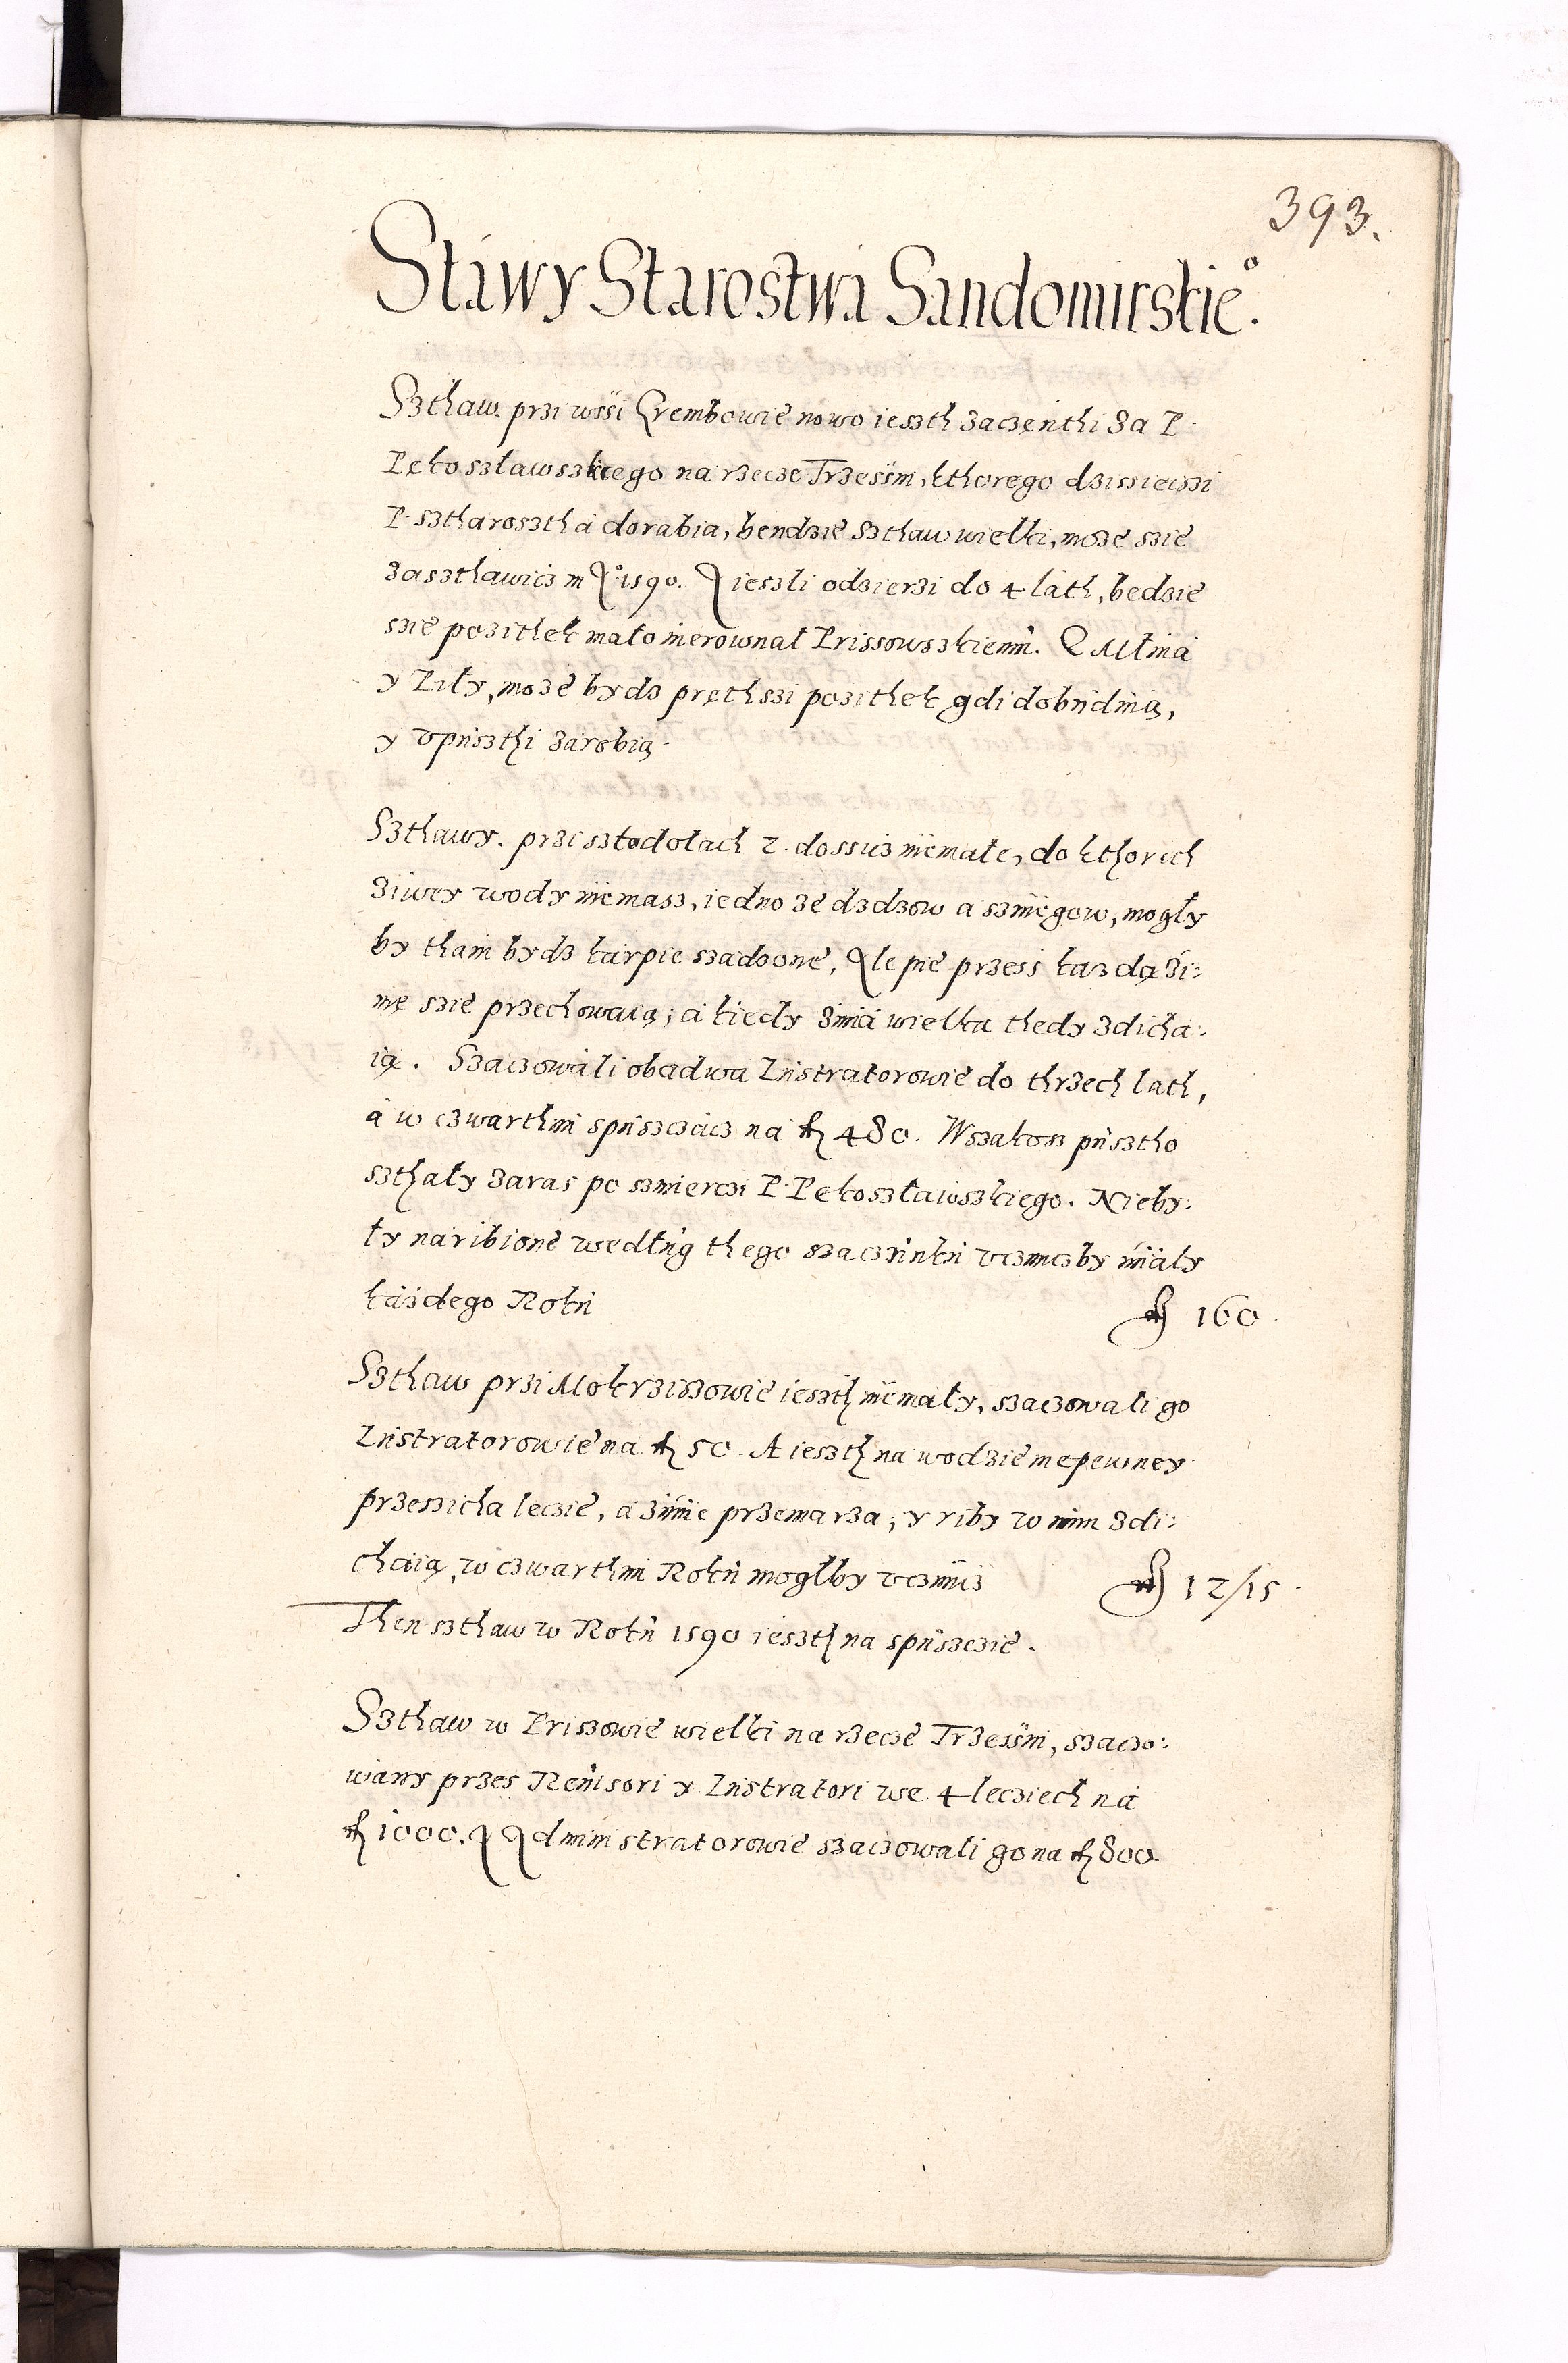 393.
Stawy Starostwa Sandomirskieº.
Szthaw. przi wssi Grembowie nowo ieszth zaczęnthi za P.
Pękoszławszkiego na rzecze Trzessni, kthorego dzissieczszi
P. sztharosztha dorabia, bendzie szthaw wielki, może szie
zaszthawicz in Aº. 1590. A ieszli odzierzi do 4 lath, bedzie
szie pozithek mało nierownał Prissowszkiemu. Z Młina
y Piły, może bydz pręthszi pozithek gdi dobuduią,
y vpuszthi zarobią.
Szthawy. przi sztodołach 2. dossicz niemałe, do kthorich
ziwey wody niemasz, iedno ze dzdzow a szniegow, mogły
by tham bydz karpie szadzone, Ale nie przess kazdą zi:
mę szie przechowaią, a kiedy zima wielka thedy zdicha:
ią. Szaczowali obadwa Lustratorowie do thrzech lath,
a w czwarthim spuszczacz na fl 480. Wszakosz pusztho
szthały zaras po szmierczi P. Pękoszławszkiego. Nieby:
ły naribione według thego szaczunku vczinicz by miały
kazdego Roku fl 160.
Szthaw przi Mokrziszowie ieszth niemały, szaczowali go
Lustratorowie na fl 50. A ieszth na wodzie niepewney
przeszicha leczie, a zimie przemarza, y riby w nim zdi:
chaią, w czwarthim Roku mogłby vczinicz fl 12/15
Then szthaw w Roku 1590 ieszth na spuszczie.
Szthaw w Priszowie wielki na rzecze Trzessni, szaczo:
wany przes Reuisori y Lustratori we 4 lecziech na
fl 1000. A Administratorowie szaczowali go na fl 800.